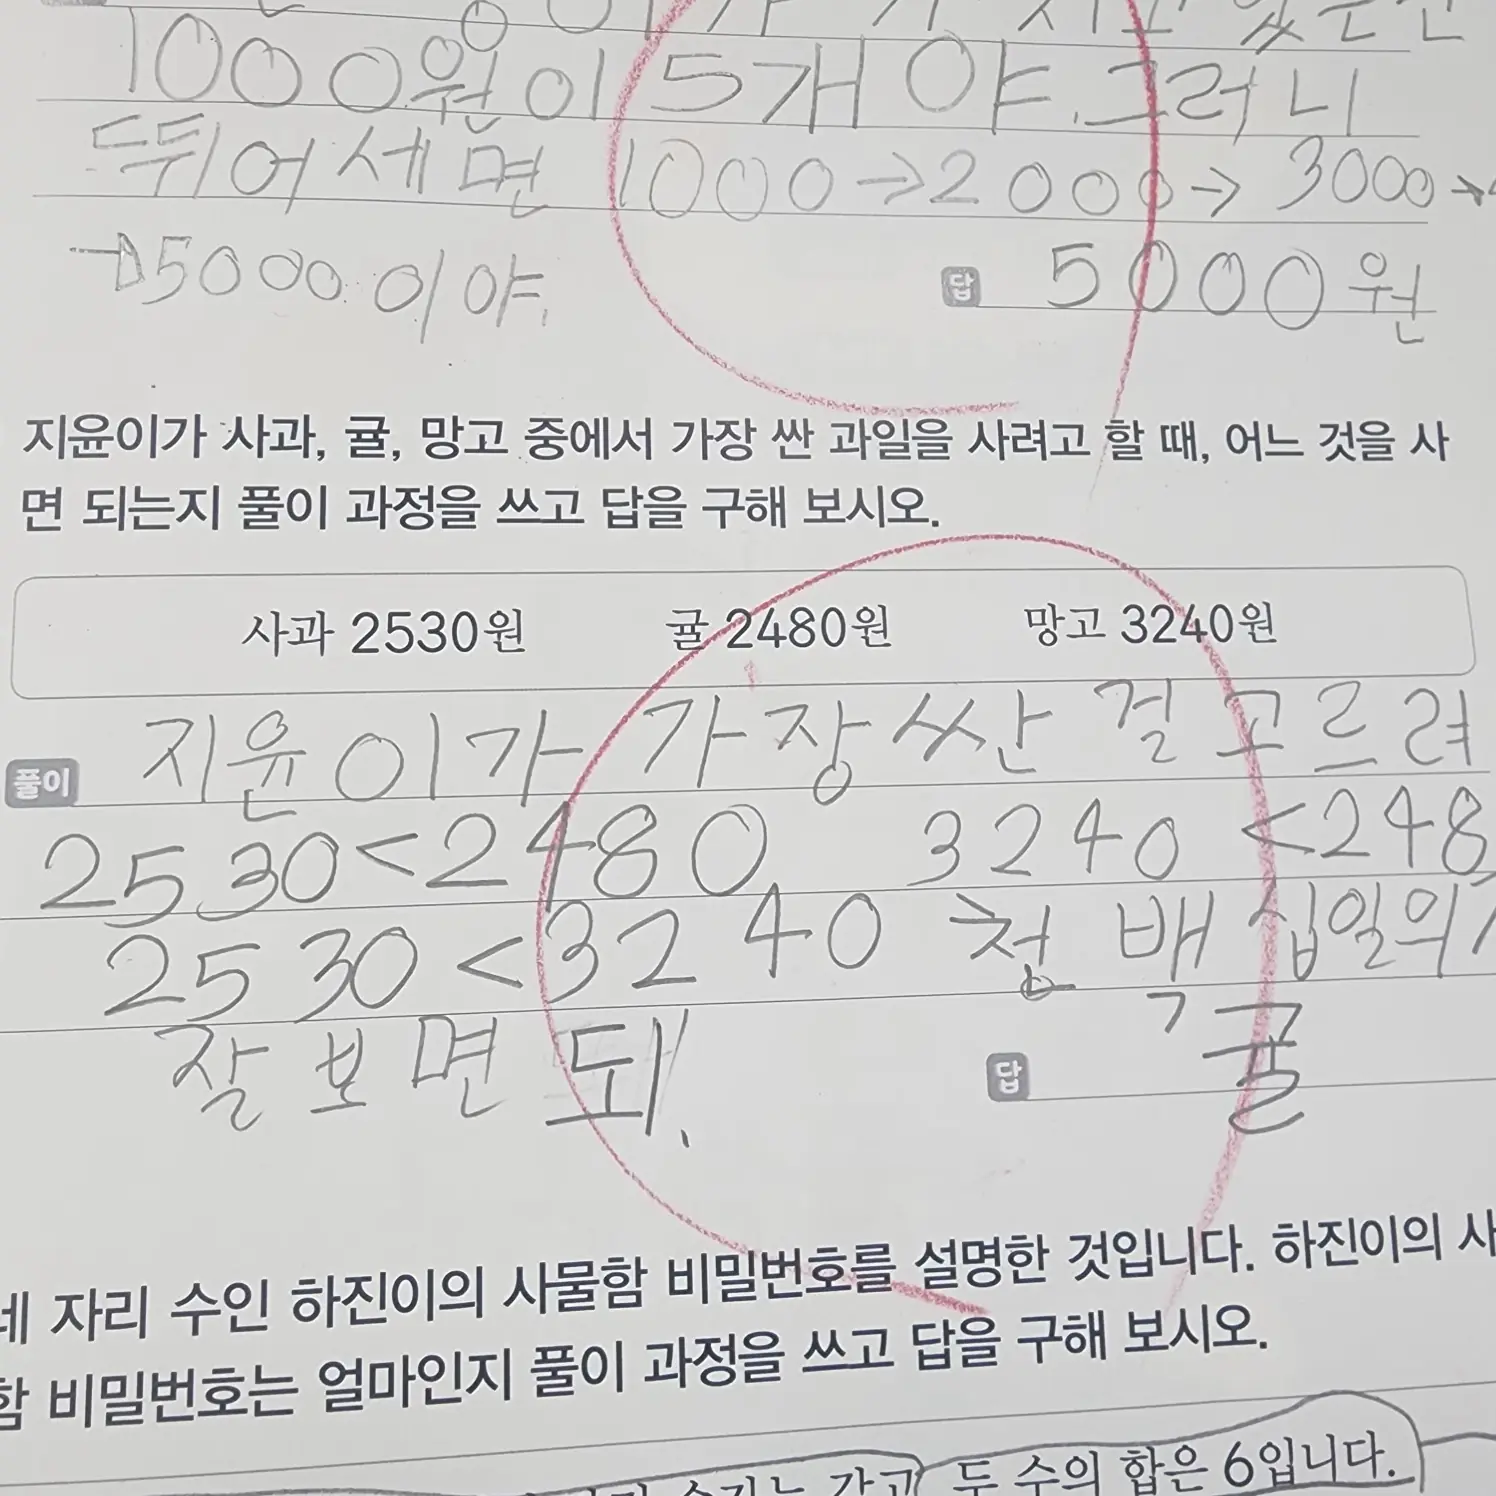 가 지고 있는건
1000원이 5개 야. 그러니
뚜뛰어 세면 1000→2000→3000→
→5000이야. 답 5000원
지윤이가 사과, 귤, 망고 중에서 가장 싼 과일을 사려고 할 때, 어느 것을 사
면 되는지 풀이 과정을 쓰고 답을 구해 보시오.
사과 2530원 귤 2480원 망고 3240원
풀이 지윤이가 가장싼 걸 고르려
2530<2480 3240<248
2530<3240 →천 백 십일의
잘 보면 돼. 답 귤
네 자리 수인 하진이의 사물함 비밀번호를 설명한 것입니다. 하진이의 사
함 비밀번호는 얼마인지 풀이 과정을 쓰고 답을 구해 보시오.
숫자는 같고 두 수의 합은 6입니다.